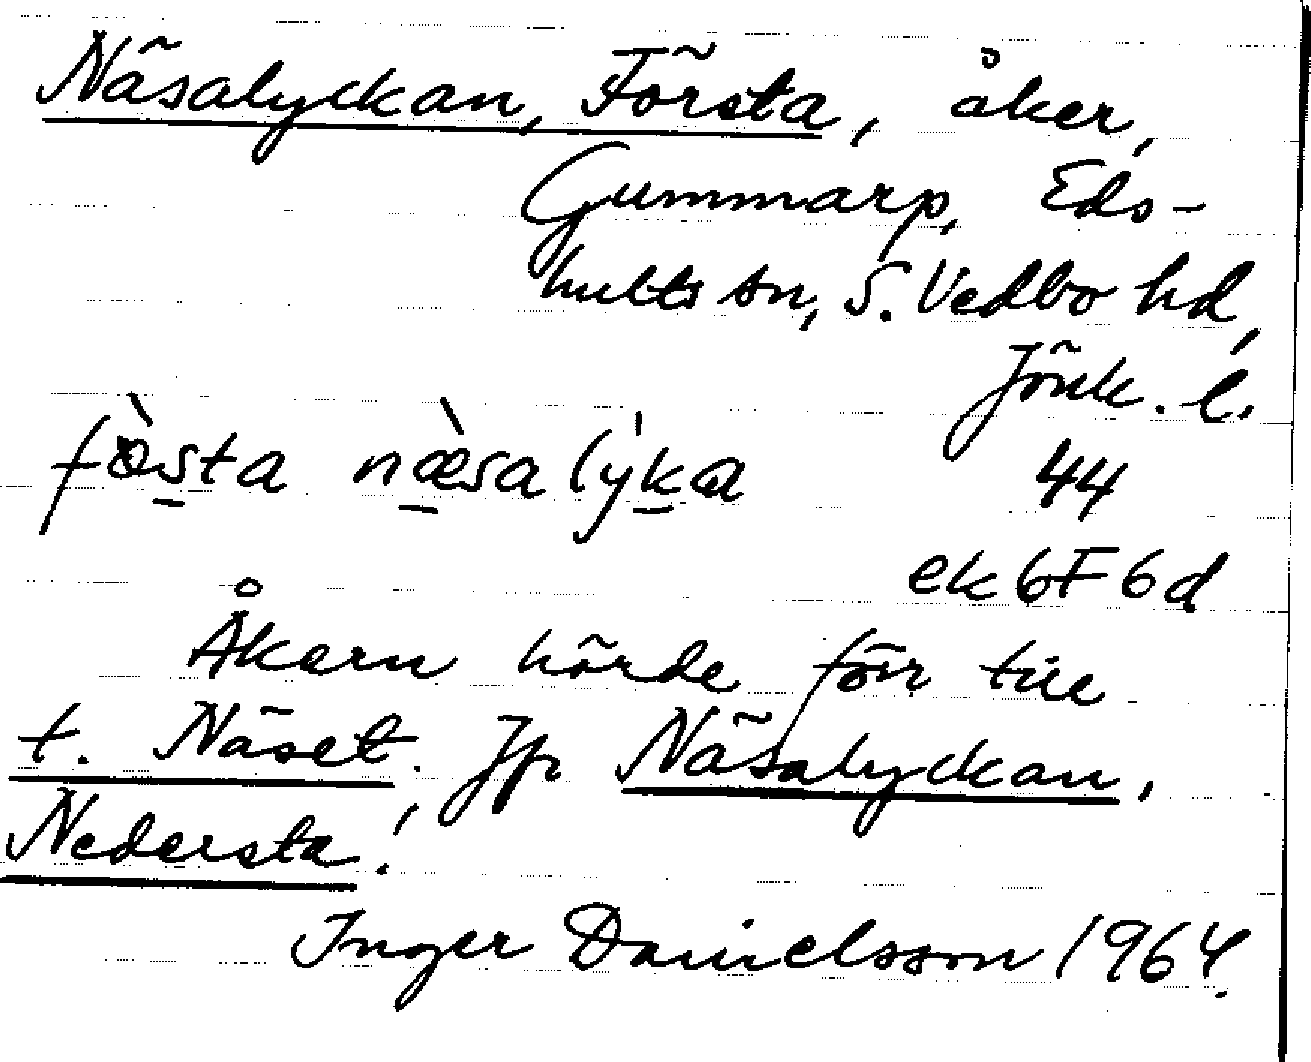 Näsalyckan, Första, åker,
Gummarp, Eds-
hults sn, S. Vedbo hd,
Jönk. l.
fø̀sta næ̀salýka 44
ek 6F6d
Åkern hörde förr till
t. Näset. Jfr Näsalyckan,
Nedersta!
Inger Danielsson 1964.